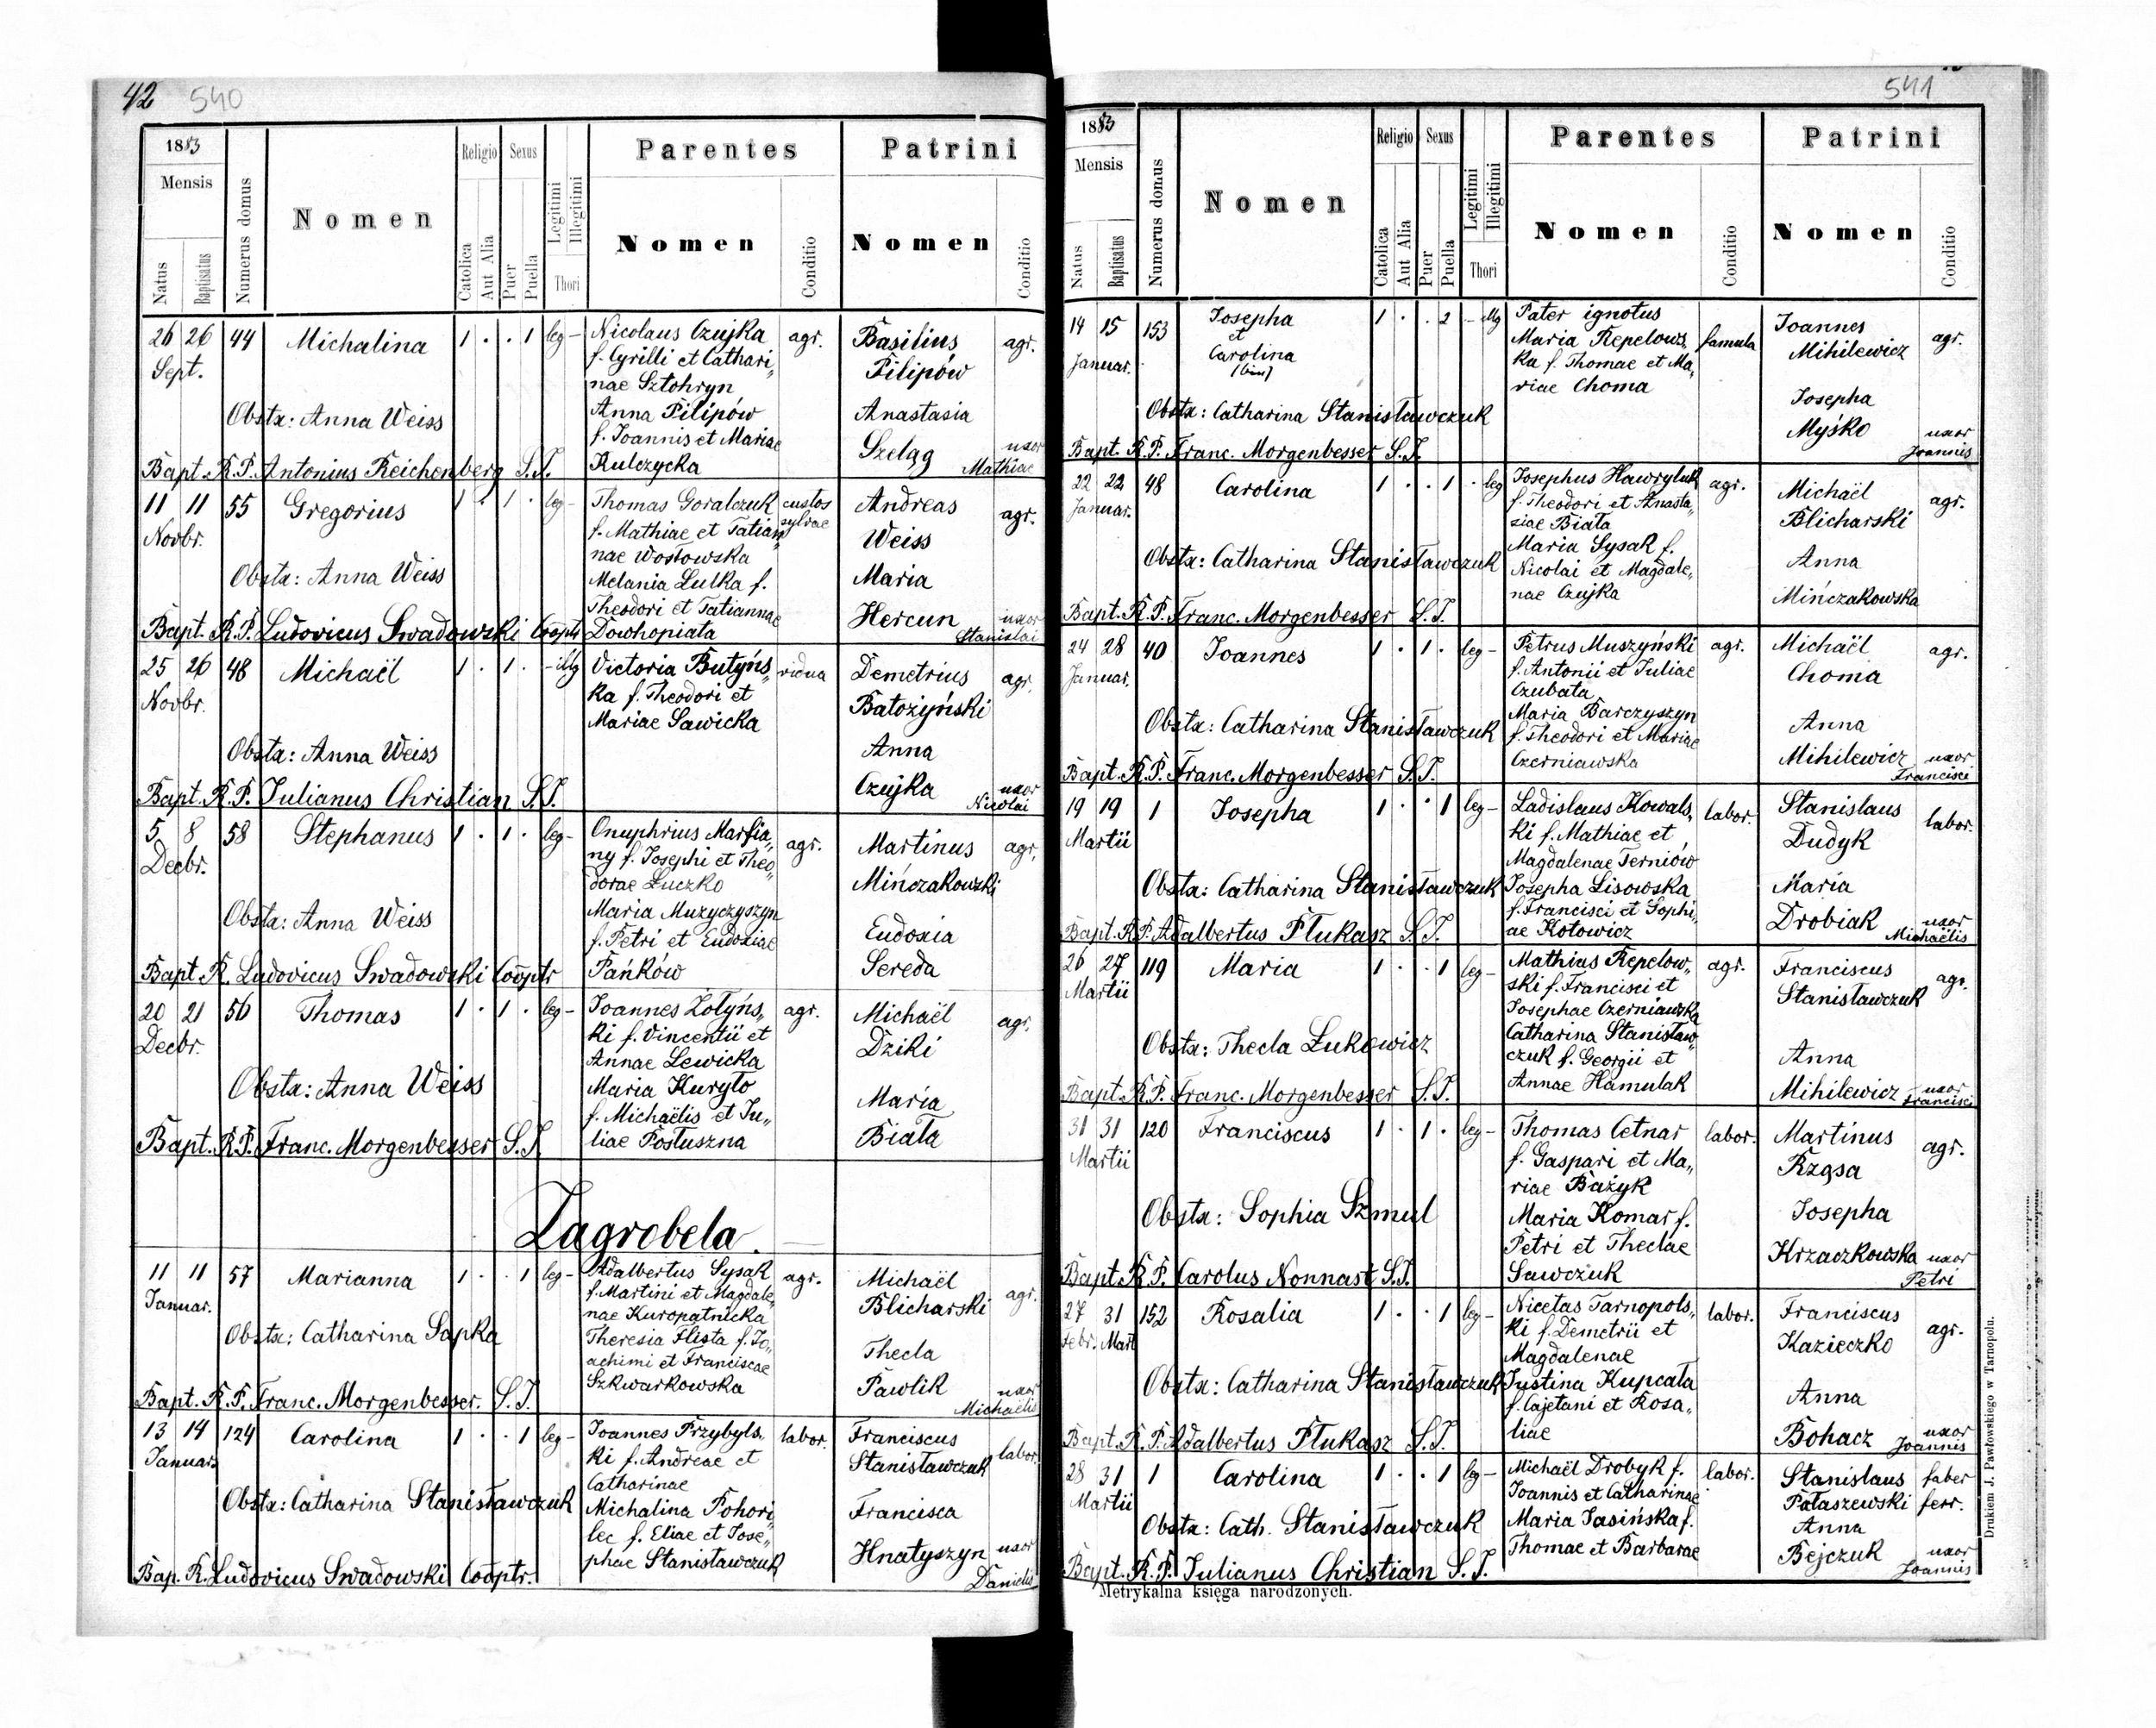 42 540
1883
Mensis
Natus
Baptisatus
Numerus domus
Nomen
Religio
Catolica
Aut Alia
Sexus
Puer
Puella
Legitimi
Illegitimi
Thori
Parentes
Nomen
Conditio
Patrini
Nomen
Conditio
26 26 44 Michalina 1 . . 1 leg –
Sept.
Nicolaus Czujka
f. Cyrilli et Cathari„
nae Sztohryn
Anna Filipów
f. Joannis et Mariae
Kulczycka
agr.
Basilius
Filipów
agr.
Anastasia
Szeląg uxor
Mathiae
Obstx: Anna Weiss
Bapt. R.P. Antonius Reichenberg S.J.
11 11 55 Gregorius 1 . 1 . leg –
Novbr.
Thomas Goralczuk
f. Mathiae et Tatian„
nae Wosłowska
Melania Lulka f.
Theodori et Tatiannae
Dowhopiata
custos
sylvae
Andreas
Weiss
agr.
Maria
Hercun uxor
Stanislai
Obstx: Anna Weiss
Bapt. R.P. Ludovicus Swadowski Cooptr
25 26 48 Michaël 1 . 1 . – illg
Novbr.
Victoria Butyńs„
ka f. Theodori et
Mariae Sawicka
vidua
Demetrius
Batożyński
agr.
Anna
Czujka uxor
Nicolai
Obstx: Anna Weiss
Bapt. R.P. Julianus Christian S.J.
5 8 58 Stephanus 1 . 1 . leg –
Decbr.
Onuphrius Marfia„
ny f. Josephi et Theo„
dorae Łuczko
Maria Muzyczyszyn
f. Petri et Eudoxiae
Pańków
agr.
Martinus
Mińczakowski
agr.
Eudoxia
Sereda
Obstx: Anna Weiss
Bapt. R. Ludovicus Swadowski Cooptr
20 21 56 Thomas 1 . 1 . leg –
Decbr.
Joannes Żołyńs„
ki f. Vincentii et
Annae Lewicka
Maria Kuryło
f. Michaëlis et Ju„
liae Postuszna
agr.
Michaël
Dziki
agr.
Maria
Biała
Obstx: Anna Weiss
Bapt. R.P. Franc. Morgenbesser S.J.
Zagrobela.
11 11 57 Marianna 1 . . 1 leg –
Januar.
Adalbertus Sysak
f. Martini et Magdale„
nae Kuropatnicka
Theresia Flista f. Jo„
achimi et Franciscae
Szkwarkowska
agr.
Michaël
Blicharski
agr.
Thecla
Pawlik uxor
Michaëlis
Obstx: Catharina Sapka
Bapt. R.P. Franc. Morgenbesser. S.J.
13 14 124 Carolina 1 . . 1 leg –
Januar.
Joannes Przybyls„
ki f. Andreae et
Catharinae
Michalina Pohori„
lec f. Eliae et Jose„
phae Stanisławczuk
labor.
Franciscus
Stanisławczuk
labor.
Francisca
Hnatyszyn uxor
Danielis
Obstx: Catharina Stanisławczuk
Bap. R. Ludovicus Swadowski Cooptr.
541
1883
Mensis
Natus
Baptisatus
Numerus domus
Nomen
Religio
Catolica
Aut Alia
Sexus
Puer
Puella
Legitimi
Illegitimi
Thori
Parentes
Nomen
Conditio
Patrini
Nomen
Conditio
14 15 153 Josepha
et
Carolina
(bin)
1 . . 2 – illg
Januar.
Pater ignotus
Maria Repelows„
ka f. Thomae et Ma„
riae Choma
famula
Joannes
Mihilewicz
agr.
Josepha
Myśko uxor
Joannis
Obstx: Catharina Stanisławczuk
Bapt. R.P. Franc. Morgenbesser S.J.
22 22 48 Carolina 1 . . 1 . leg
Januar.
Josephus Hawryluk
f. Theodori et Anasta„
siae Biała
Maria Sysak f.
Nicolai et Magdale„
nae Czujka
agr.
Michaël
Blicharski
agr.
Anna
Mińczakowska
Obstx: Catharina Stanisławczuk
Bapt. R.P. Franc. Morgenbesser S.J.
24 28 40 Joannes 1 . 1 . leg –
Januar.
Petrus Muszyński
f. Antonii et Juliae
Czubata
Maria Barczyszyn
f. Theodori et Mariae
Czerniawska
agr.
Michaël
Choma
agr.
Anna
Mihilewicz uxor
Francisci
Obstx: Catharina Stanisławczuk
Bapt. R.P. Franc. Morgenbesser S.J.
19 19 1 Josepha 1 . . 1 leg –
Martii
Ladislaus Kowals„
ki f. Mathiae et
Magdalenae Terniów
Josepha Lisowska
f. Francisci et Sophi„
ae Kotowicz
labor.
Stanislaus
Dudyk
labor.
Maria
Drobiak uxor
Michaëlis
Obstx: Catharina Stanisławczuk
Bapt. R.P. Adalbertus Flukasz S.J.
26 27 119 Maria 1 . . 1 leg –
Martii
Mathius Repelow„
ski f. Francisci et
Josephae Czerniawska
Catharina Stanisław„
czuk f. Georgii et
Annae Hamulak
agr.
Franciscus
Stanisławczuk
agr.
Anna
Mihilewicz uxor
Francisci
Obstx: Thecla Łukowicz
Bapt. R.P. Franc. Morgenbesser S.J.
31 31 120 Franciscus 1 . 1 . leg –
Martii
Thomas Cetnar
f. Gaspari et Ma„
riae Bażyk
Maria Komar f.
Petri et Theclae
Sawczuk
labor.
Martinus
Rząsa
agr.
Josepha
Krzaczkowska uxor
Petri
Obstx: Sophia Szmul
Bapt. R.P. Carolus Nonnast S.J.
27 31 152 Rosalia 1 . . 1 leg –
Febr. Mart
Nicetas Tarnopols„
ki f. Demetrii et
Magdalenae
Justina Kupcata
f. Cajetani et Rosa„
liae
labor.
Franciscus
Kazieczko
agr.
Anna
Bohacz uxor
Joannis
Obstx: Catharina Stanisławczuk
Bapt. R.P. Adalbertus Flukasz S.J.
28 31 1 Carolina 1 . . 1 leg –
Martii
Michaël Drobyk f.
Joannis et Catharinae
Maria Jasińska f.
Thomae et Barbarae
labor.
Stanislaus
Pałaszewski
faber
ferr.
Anna
Bejczuk uxor
Joannis
Obstx: Cath. Stanisławczuk
Bapt. R.P. Julianus Christian S.J.
Metrykalna księga narodzonych.
Drukiem J. Pawłowskiego w Tarnopolu.